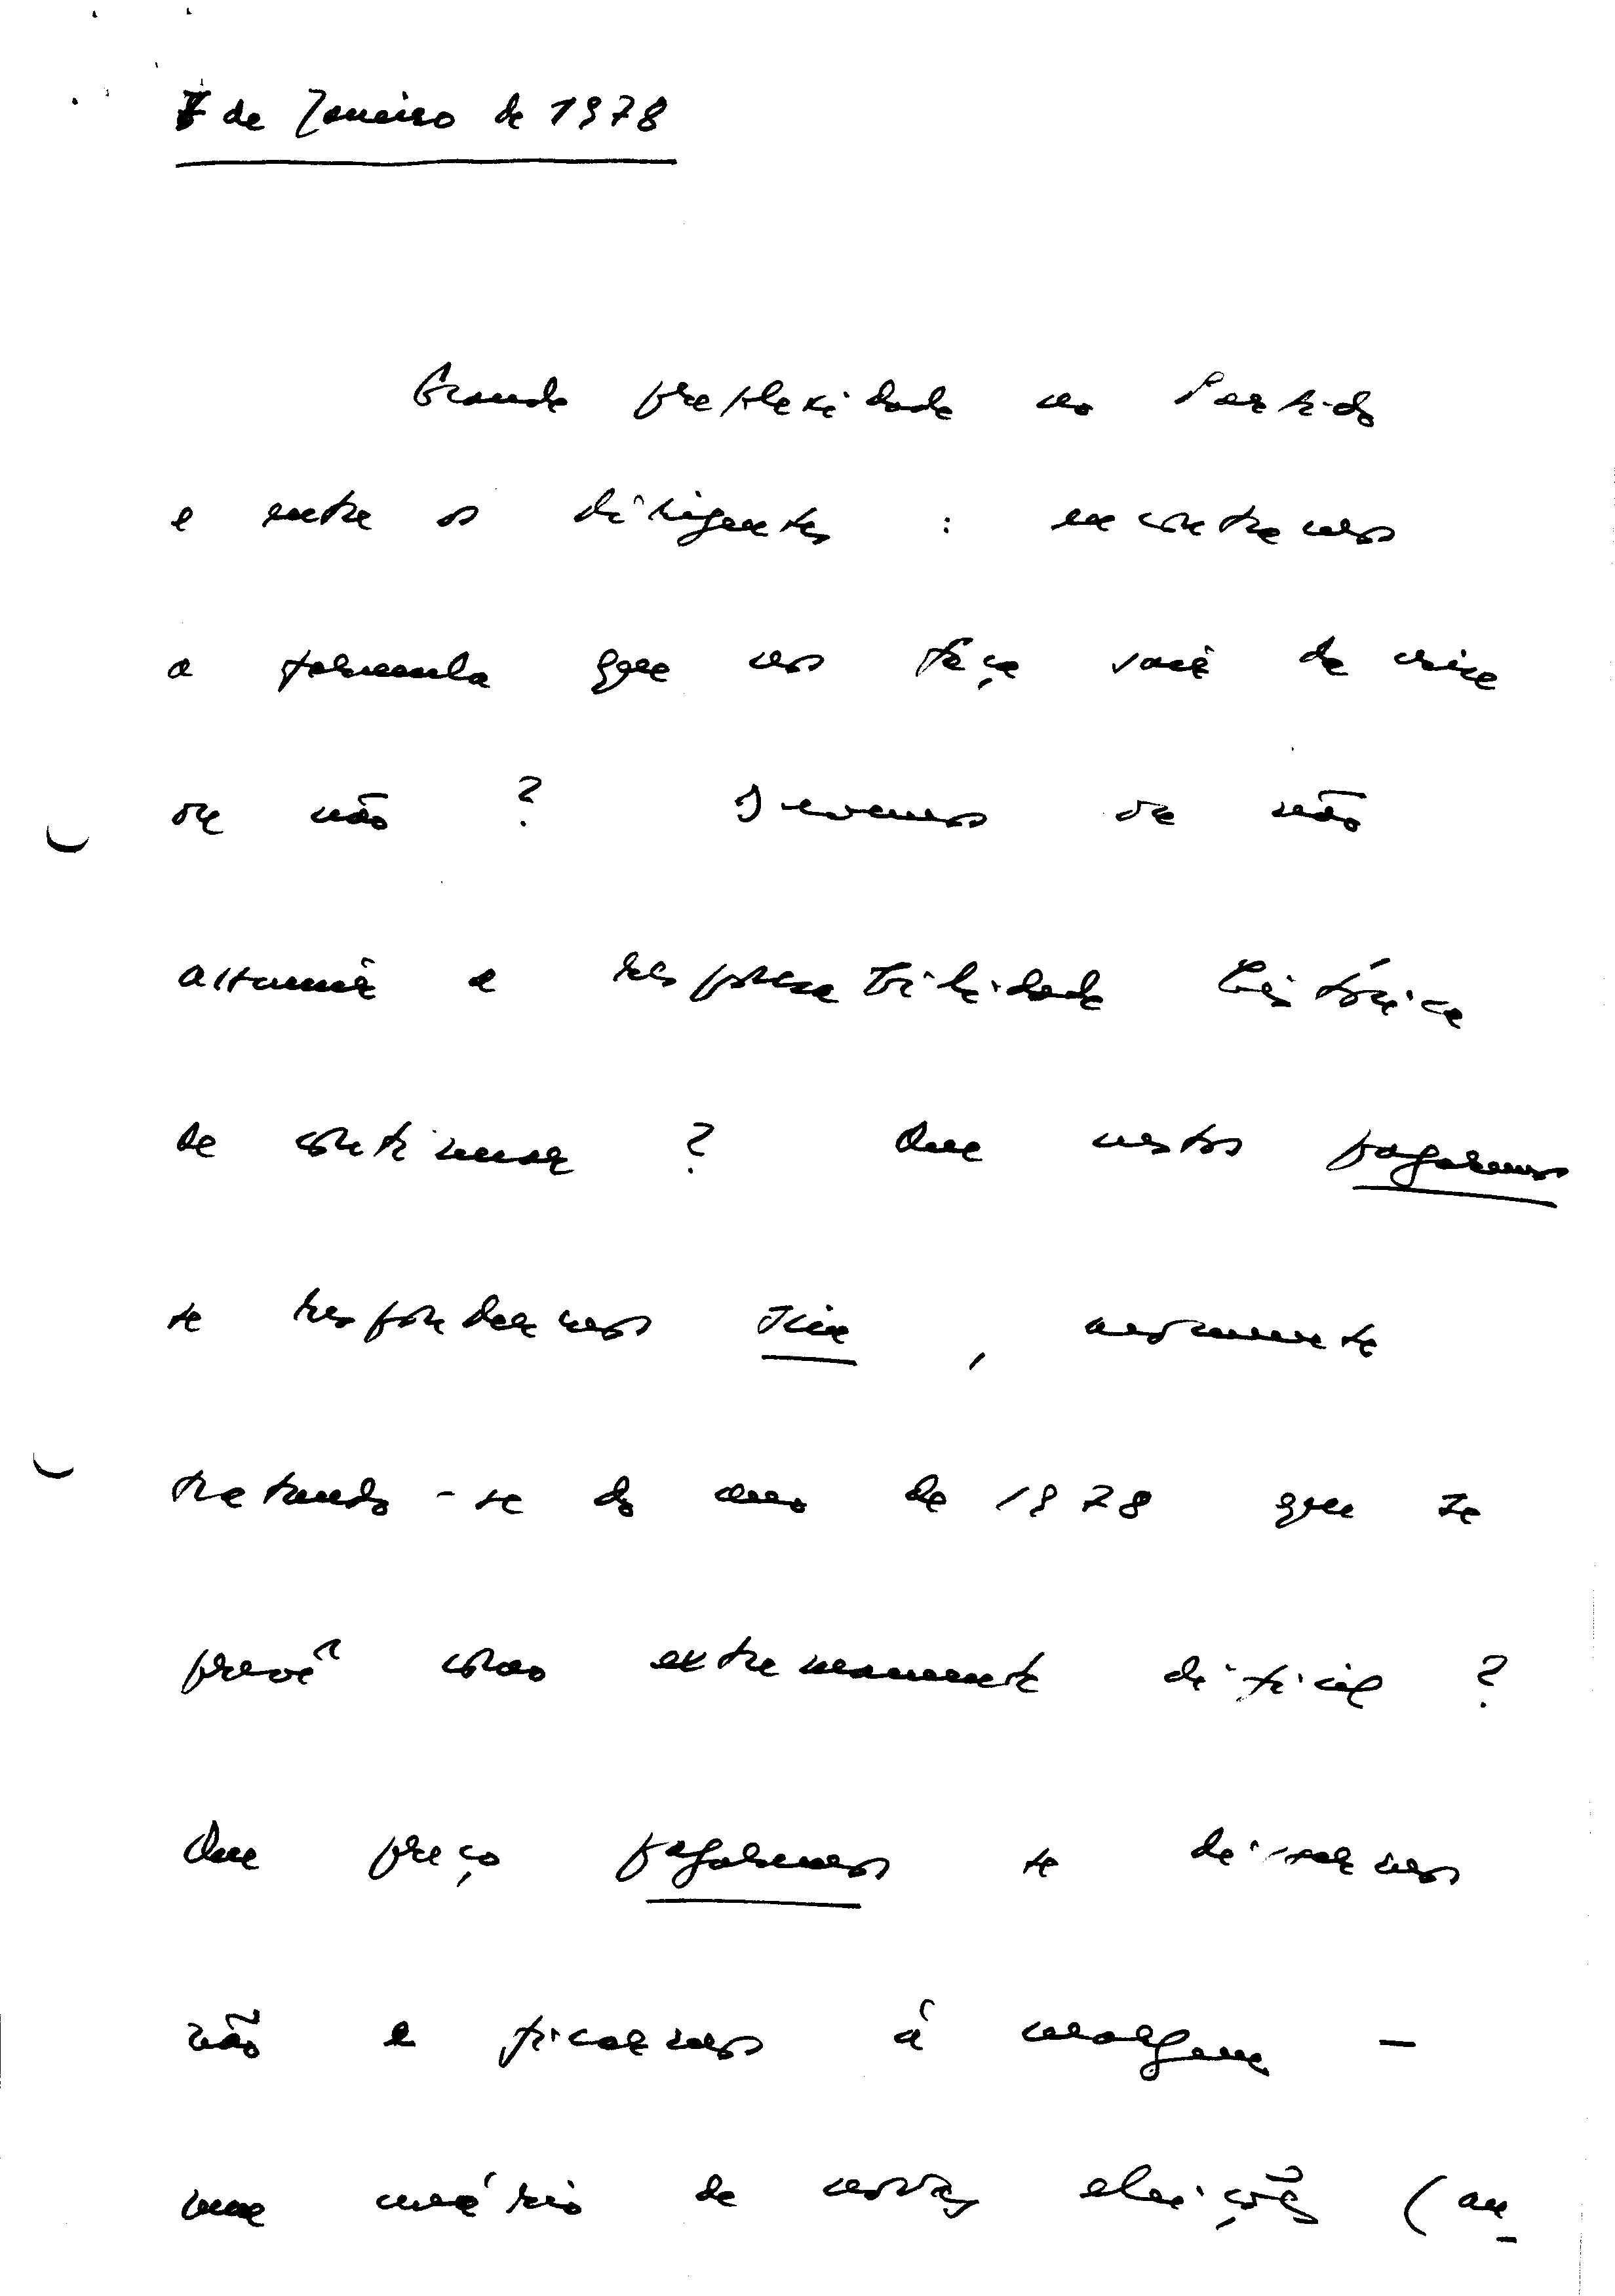 7 de Janeiro de 1978
Grande preplexidade no Partido
e entre os dirigentes : encontramos
a fórmula que nos faça sair da crise
ou não ? Devemos ou não
assumir a responsabilidade histórica
de continuar ? Que custos pagaremos
se respondermos sim , novamente
tratando-se do ano de 1978 que se
prevê como extremamente dificil ?
Que preço pagaremos se dissermos
não e ficarmos à margem –
num cenário de novas eleições (an-